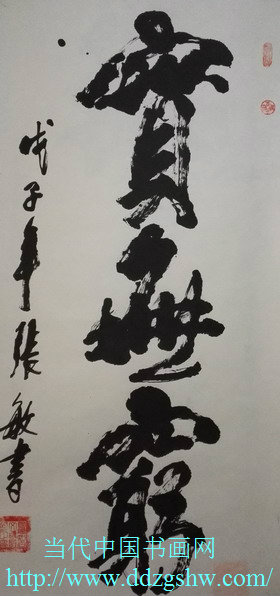 無窮
戊子年張敏書
当代中国书画网
http://www.ddzgshw.com/